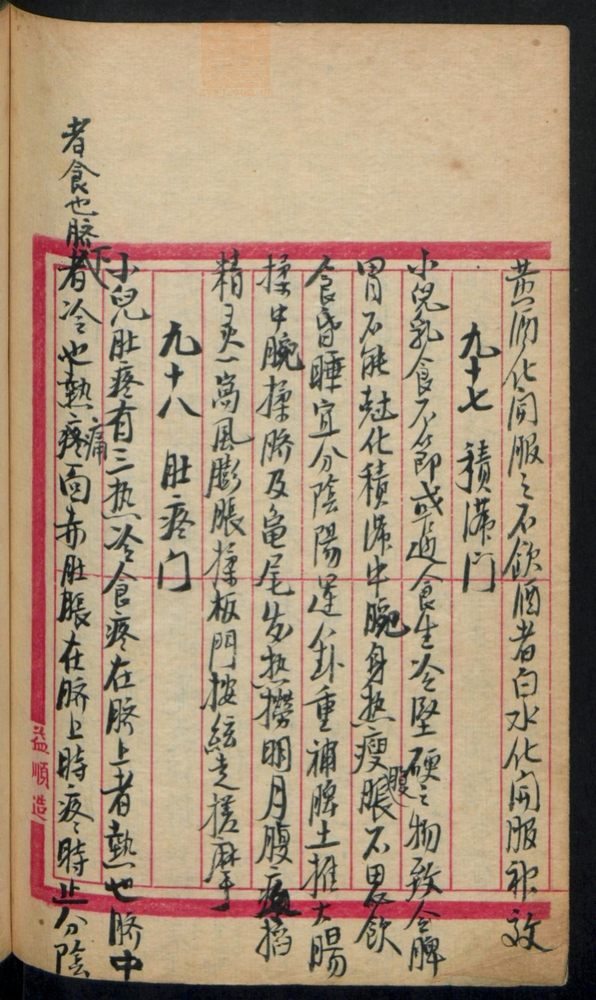 黄酒化開服之不飲酒者白水化開服神效
九十七 積滯门
小兒乳食不節或過食生冷堅硬之物致令脾
胃不能尅化積滯中脘身熱瘦腹脹不思飲
食昏睡宜分陰陽運卦重補脾土推大腸
揉中脘揉臍及龜尾发热撈明月腹疼掐
精灵一窩風膨脹揉板門按絃走搓摩手
九十八 肚疼门
小兒肚疼有三热冷食疼在臍上者熱也臍中
者食也臍下者冷也熱痛疼面赤肚脹在臍上時疼時止分陰
益順造